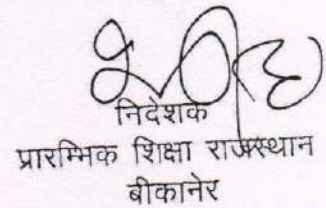 निदेशक
प्रारम्भिक शिक्षा राजस्थान
बीकानेर